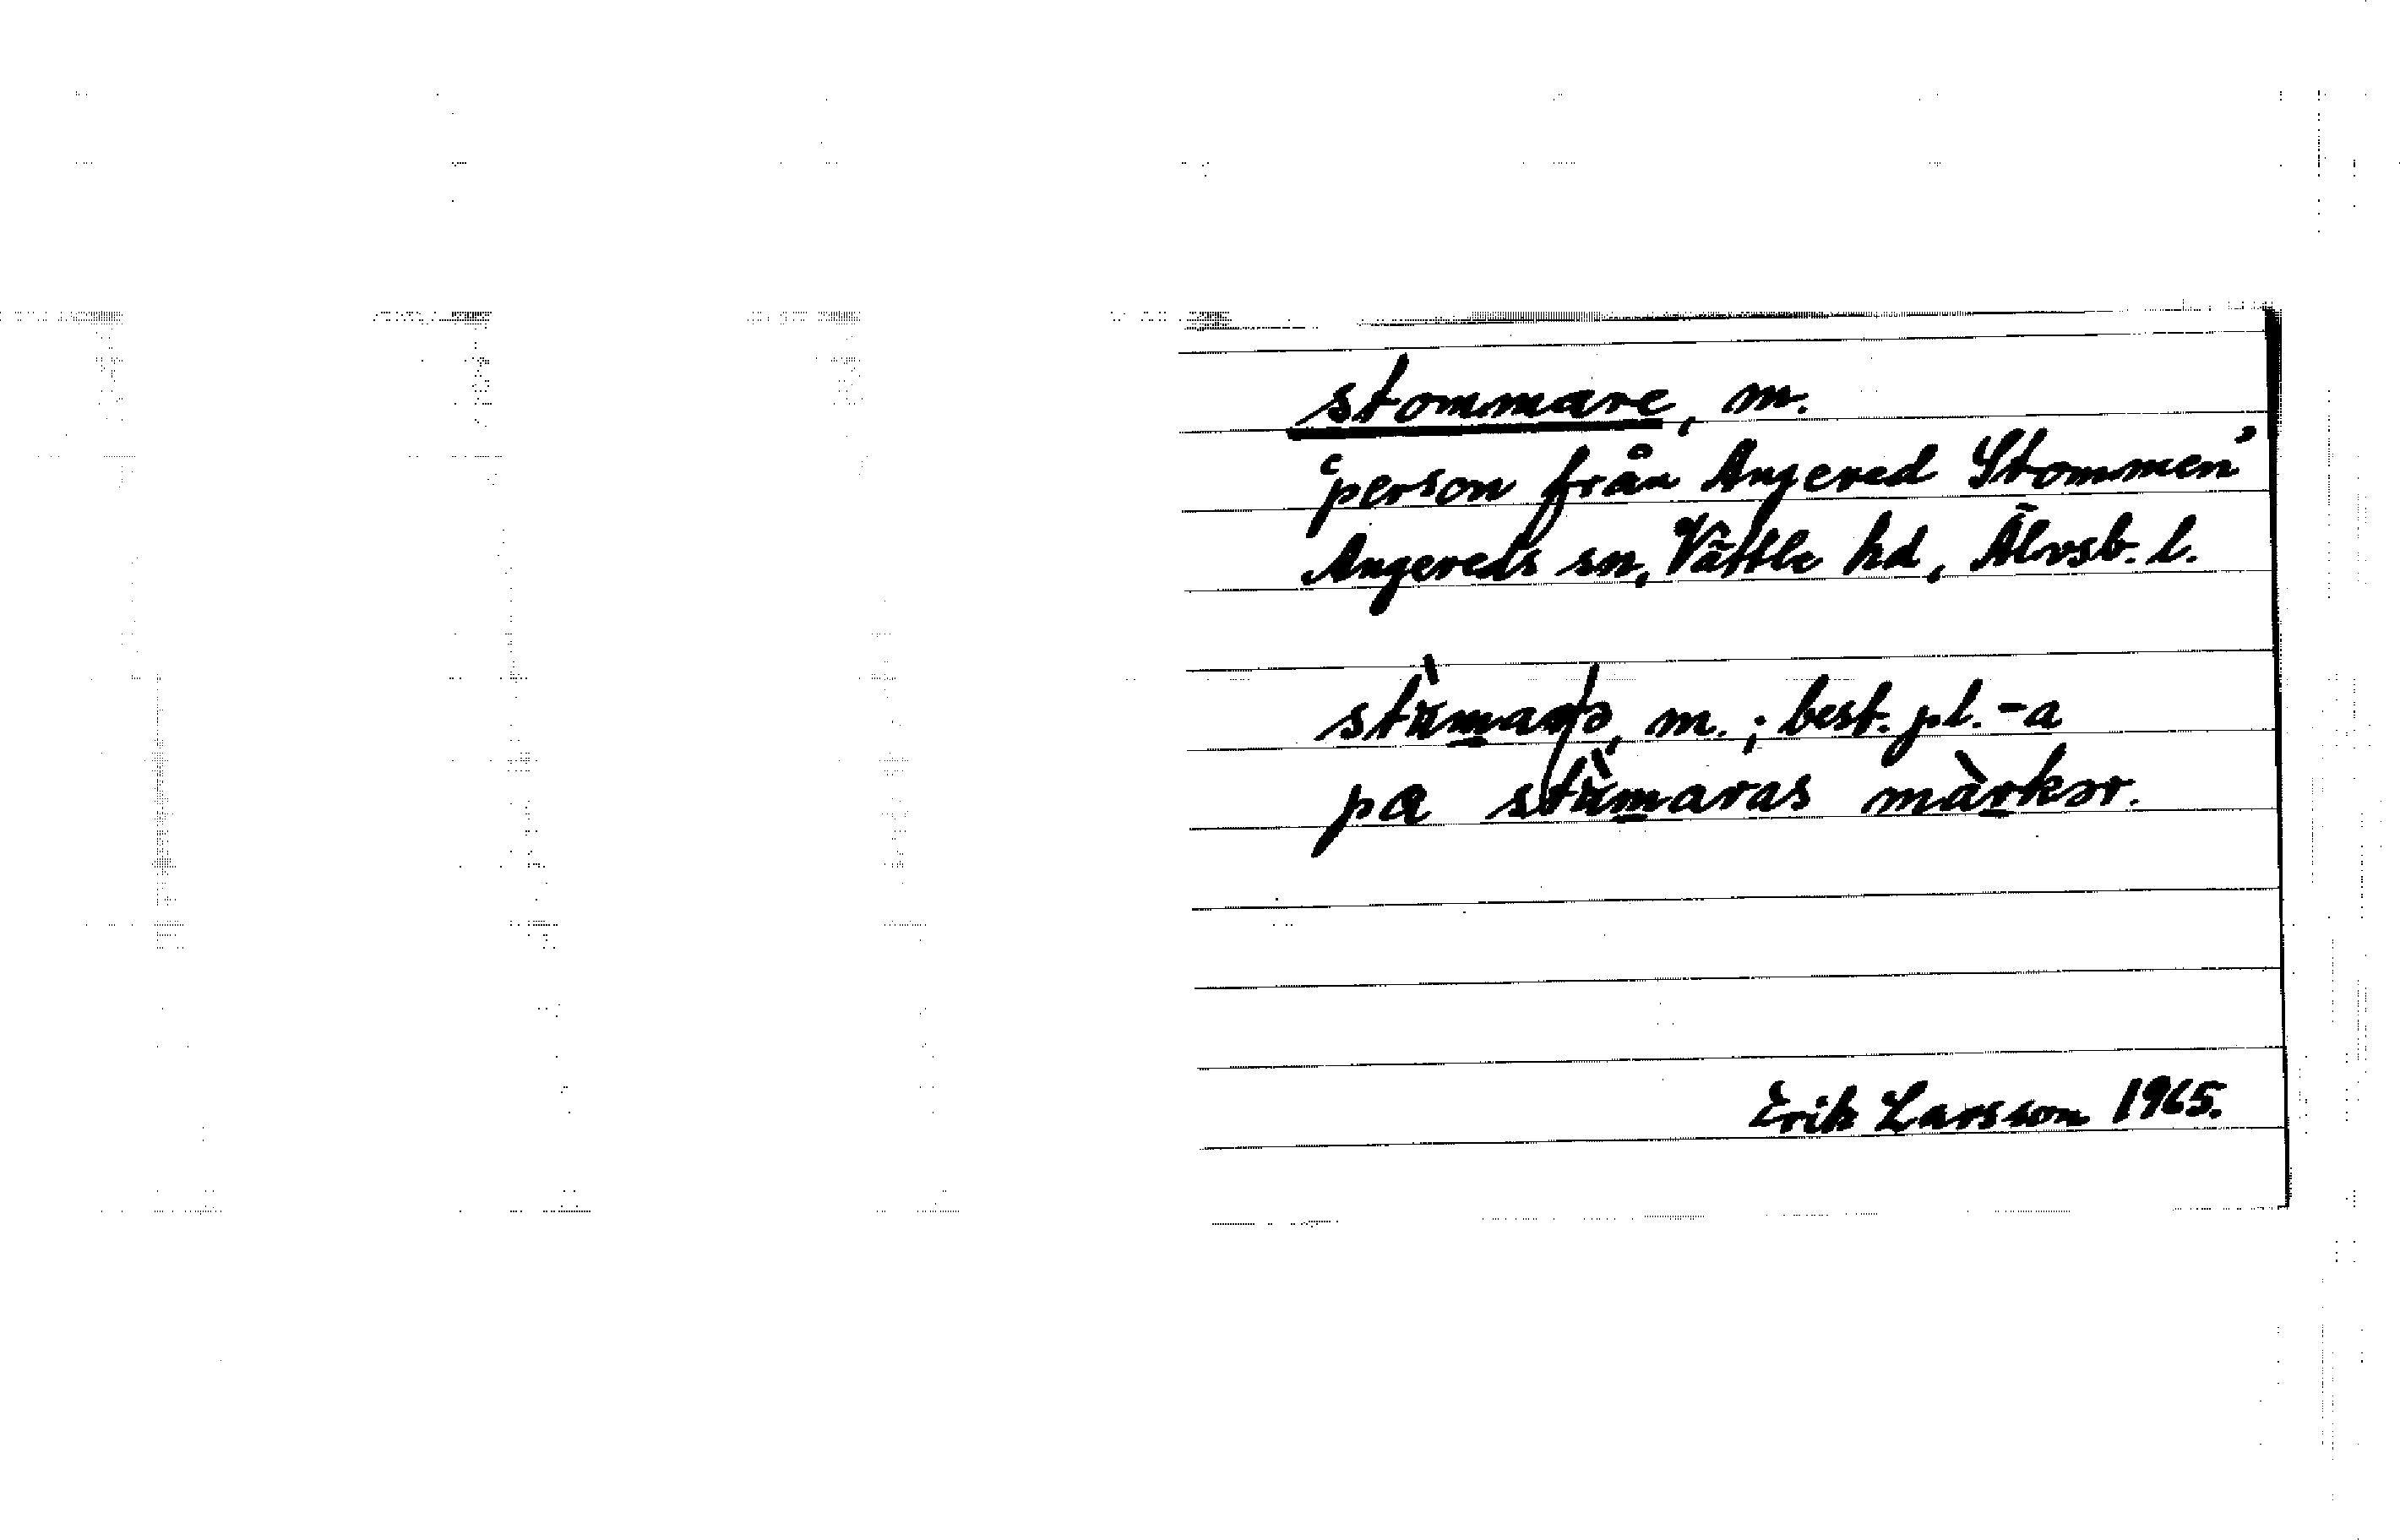 stommare, m.
'person från Angered Stommen'
Angereds sn, Vättle hd, Älvsb. l.
stùmarə, m.; best. pl. -a
pa stùmaras màrkər.
Erik Larsson 1965.